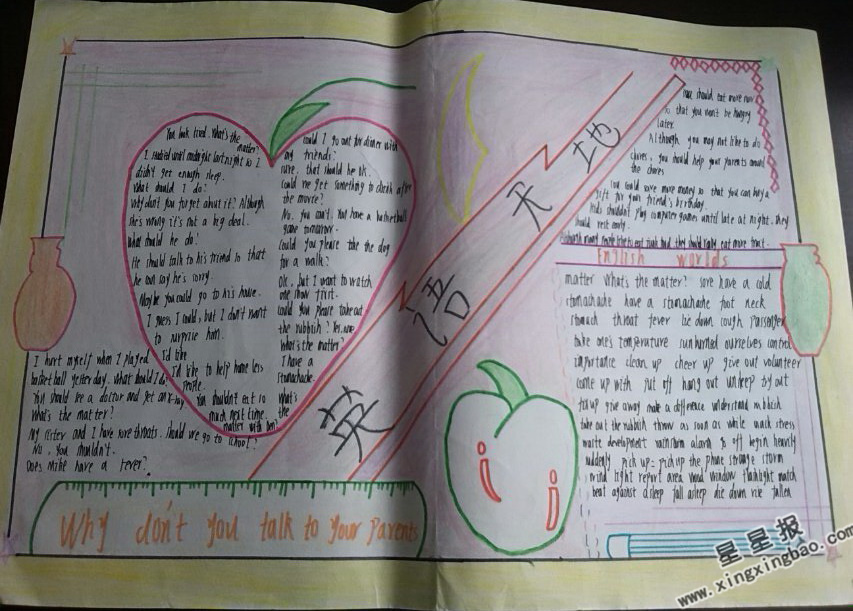 You look tired. What's the
matter?
I studied until midnight last night so I
didn't get enough sleep.
What should I do?
Why don't you forget about it? Although
she's wrong it's not a big deal.
What should he do?
He should talk to his friend so that
he can say he's sorry.
Maybe you could go to his house.
I guess I could, but I don't want
to surprise him.
I hurt myself when I played
basketball yesterday. What should I do?
You should see a doctor and get an X-ray.
What's the matter?
My sister and I have sore throats. Should we go to school?
No, you shouldn't.
Does Mike have a fever?
I'd like
I'd like to help home less
people.
You shouldn't eat so
much next time.
matter with Ben?
could I go out for dinner with
my friends?
sure, that should be ok.
Could we get something to drink after
the movie?
No, you can't. You have a basketball
game tomorrow.
Could you please take the dog
for a walk?
Ok, but I want to watch
one show first.
Could you please take out
the rubbish? Yes, sure.
What's the matter?
I have a
stomachache.
What's
the
英语天地
Why don't you talk to your parents
should eat more now
so that you won't be hungry
later.
Although you may not like to do
chores, you should help your parents around
the chores
You could save more money so that you can buy a
gift for your friend's birthday.
Kids shouldn't play computer games until late at night. They
should rest early.
Although many people like to eat junk food, they should really eat more fruit.
English worlds
matter What's the matter? sore have a cold
stomachache have a stomachache foot neck
stomach throat fever lie down cough passenger
take one's temperature sunburned ourselves control
importance clean up cheer up give out volunteer
come up with put off hang out try out
fix up give away make a difference understand rubbish
take out the rubbish throw as soon as while snack stress
waste development rainstorm alarm go off begin heavily
suddenly pick up = pick up the phone strange storm
wind light report area wood window flashlight match
beat against asleep fall asleep die down rise fallen
星星报
www.xingxingbao.com